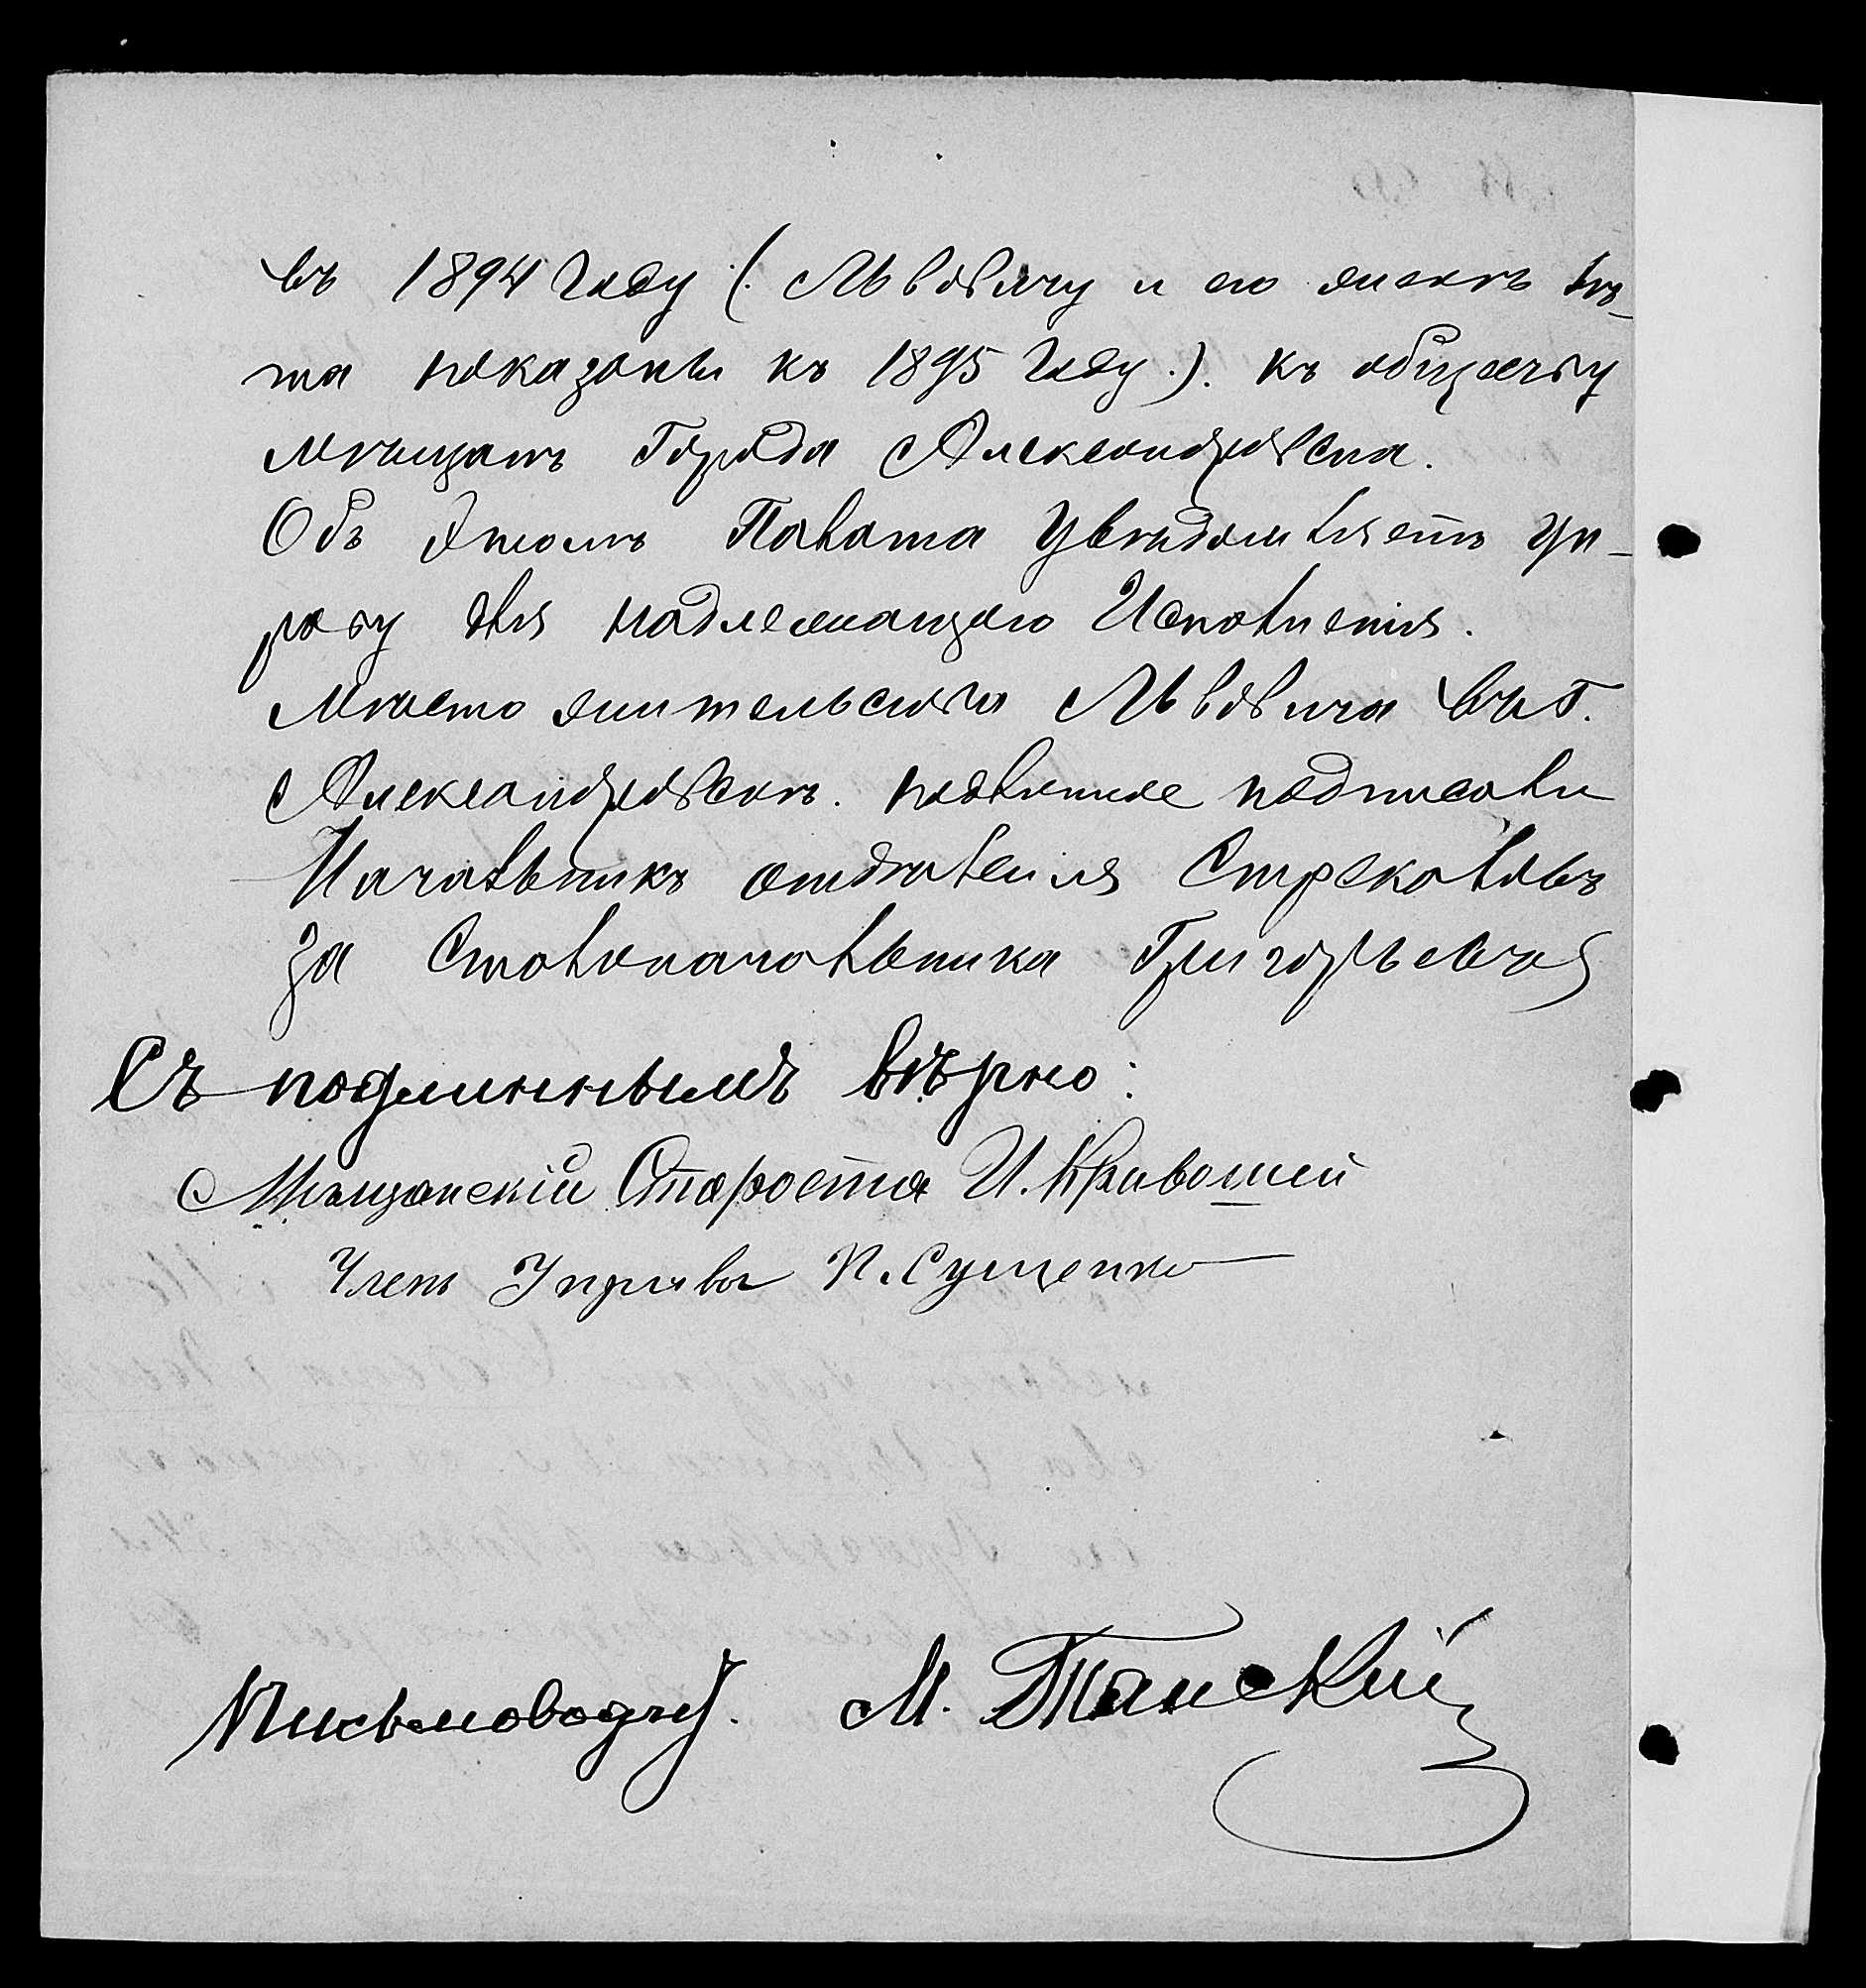 въ 1894 году (. Львовичу и его женѣ лѣ-
та показаны къ 1895 году.). къ обществу
мѣщанъ Города Александровска.
Объ этомъ Палата Увѣдомляетъ Уп-
раву для надлежащаго Исполненія.
Мѣсто жительства Львовича въ Г.
Александровскѣ. подлинное подписали
Начальникъ отдѣленія Стрекаловъ
за Столоначальника Григорьевъ
Съ подлиннымъ вѣрно:
Мѣщанскій Староста И. Кривошей
Членъ Управы К. Сущенко
Письмоводит. М. Танскій